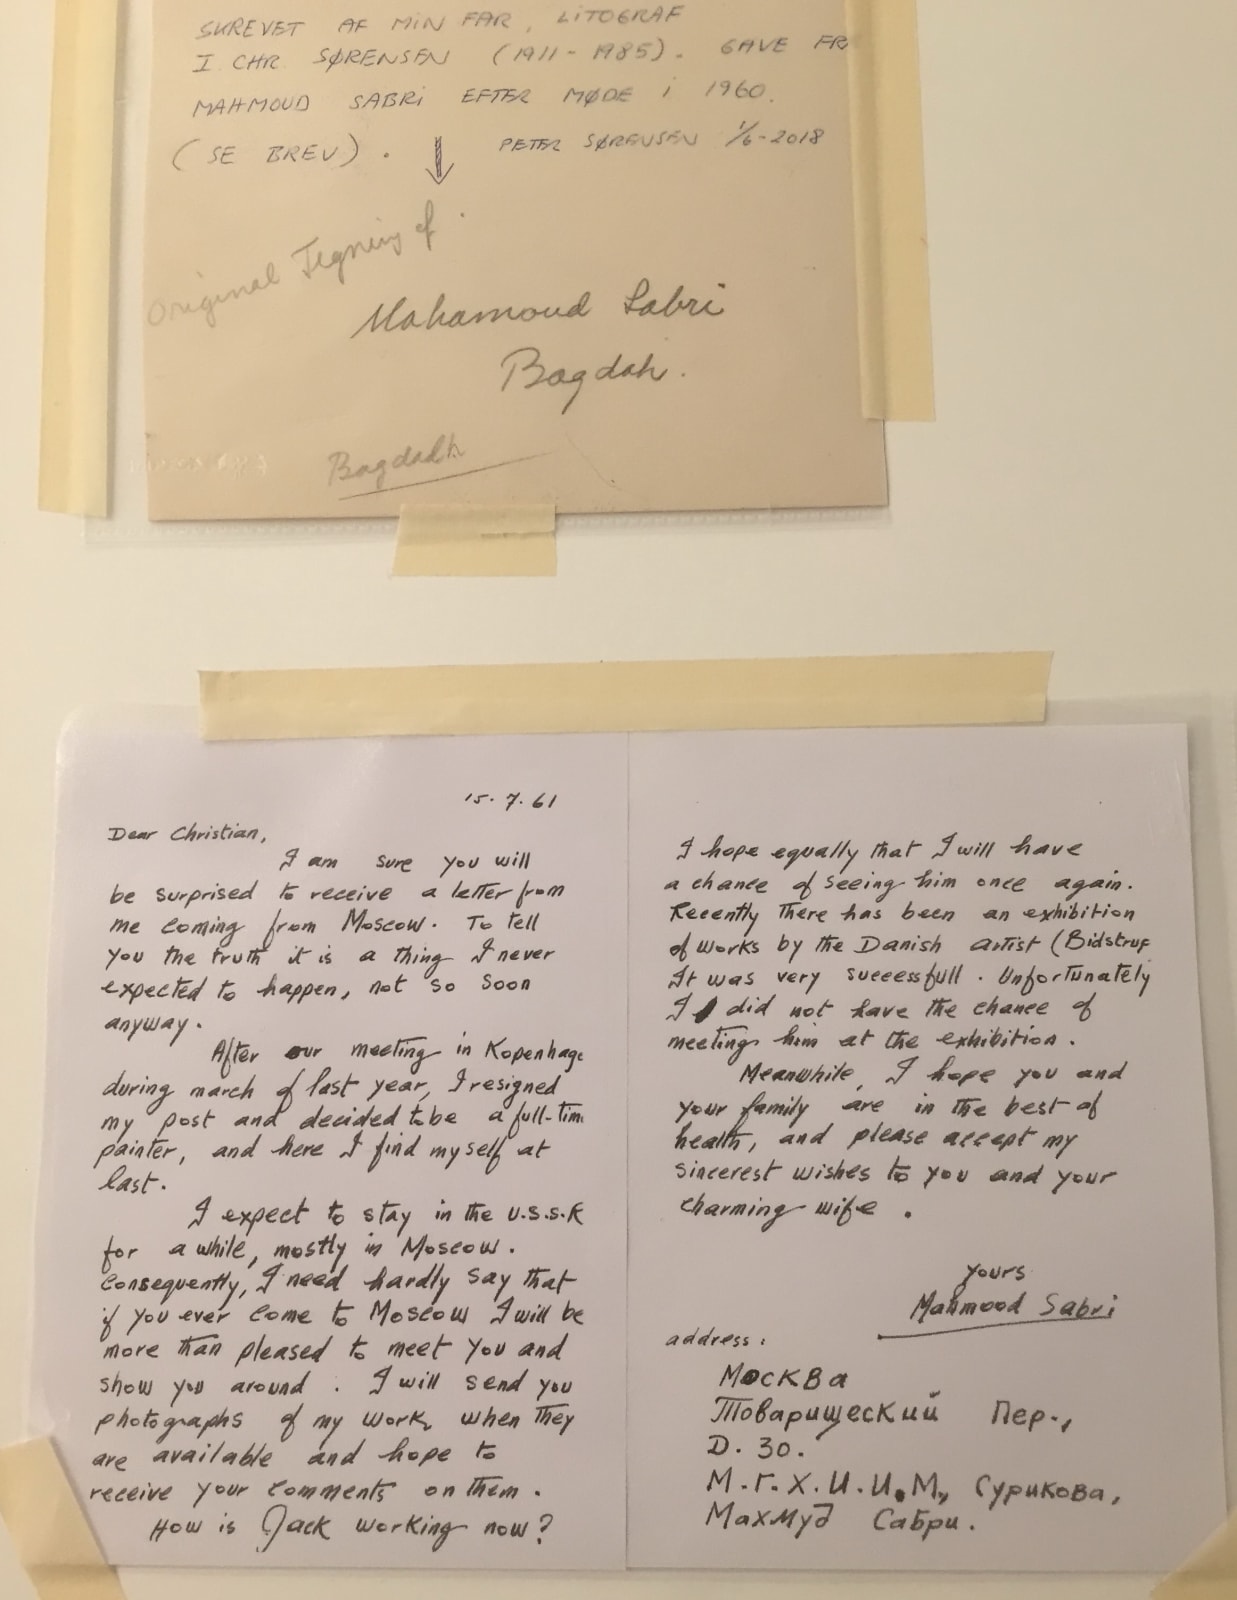 SKREVET AF MIN FAR, LITOGRAF
I. CHR SØRENSEN (1911-1985). GAVE FR
MAHMOUD SABRI EFTER MØDE i 1960.
(SE BREV). PETER SØRENSEN 1/6-2018
Original Tegning of
Mahamoud Sabri
Bagdah.
Bagdadh
15.7.61
Dear Christian,
I am sure you will
be surprised to receive a letter from
me coming from Moscow. To tell
you the truth it is a thing I never
expected to happen, not so soon
anyway.
After our meeting in Kopenhage
during march of last year, I resigned
my post and decided to be a full-tim
painter, and here I find myself at
last.
I expect to stay in the U.S.S.R
for a while, mostly in Moscow.
Consequently, I need hardly say that
if you ever come to Moscow I will be
more than pleased to meet you and
show you around. I will send you
photographs of my work, when they
are available and hope to
receive your comments on them.
How is Jack working now?
I hope equally that I will have
a chance of seeing him once again.
Recently there has been an exhibition
of works by the Danish artist (Bidstrup
It was very successfull. Unfortunately
I did not have the chance of
meeting him at the exhibition.
Meanwhile, I hope you and
your family are in the best of
health, and please accept my
sincerest wishes to you and your
charming wife.
yours
Mahmood Sabri
address:
Москва
Товарищеский Пер.,
Д. 30.
М.Г.Х.И.И.М, Сурикова,
Махмуд Сабри.